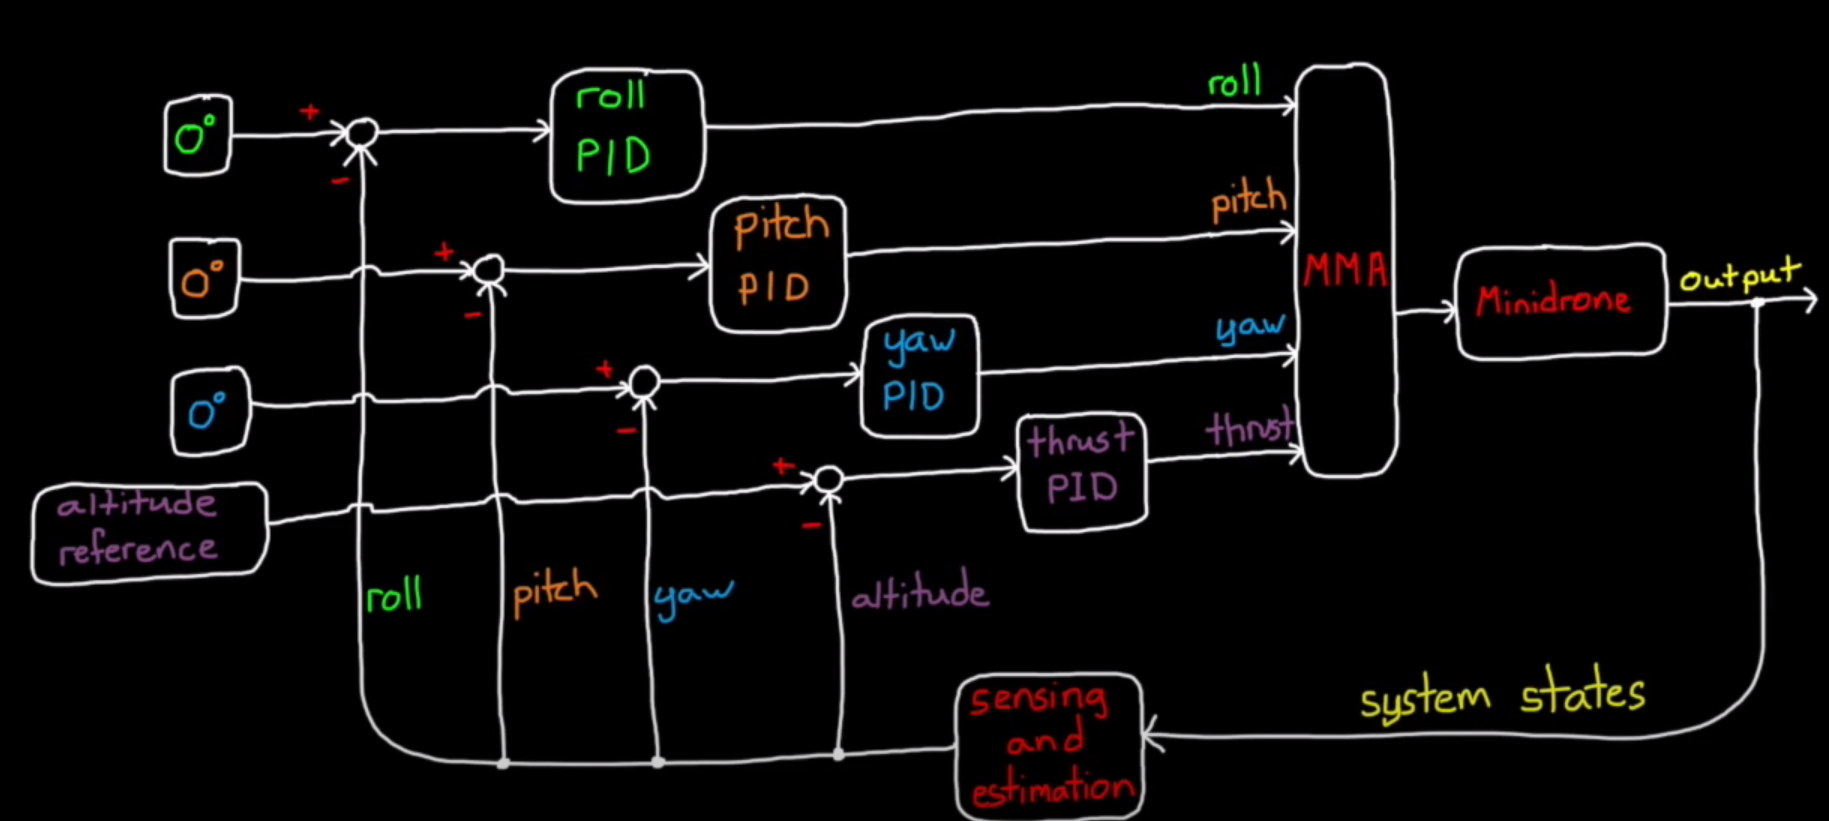 roll
0°
+
-
roll
PID
0°
+
-
pitch
PID
pitch
0°
+
-
yaw
PID
yaw
altitude
reference
+
-
thrust
PID
thrust
MMA
Minidrone
output
roll
pitch
yaw
altitude
sensing
and
estimation
system states